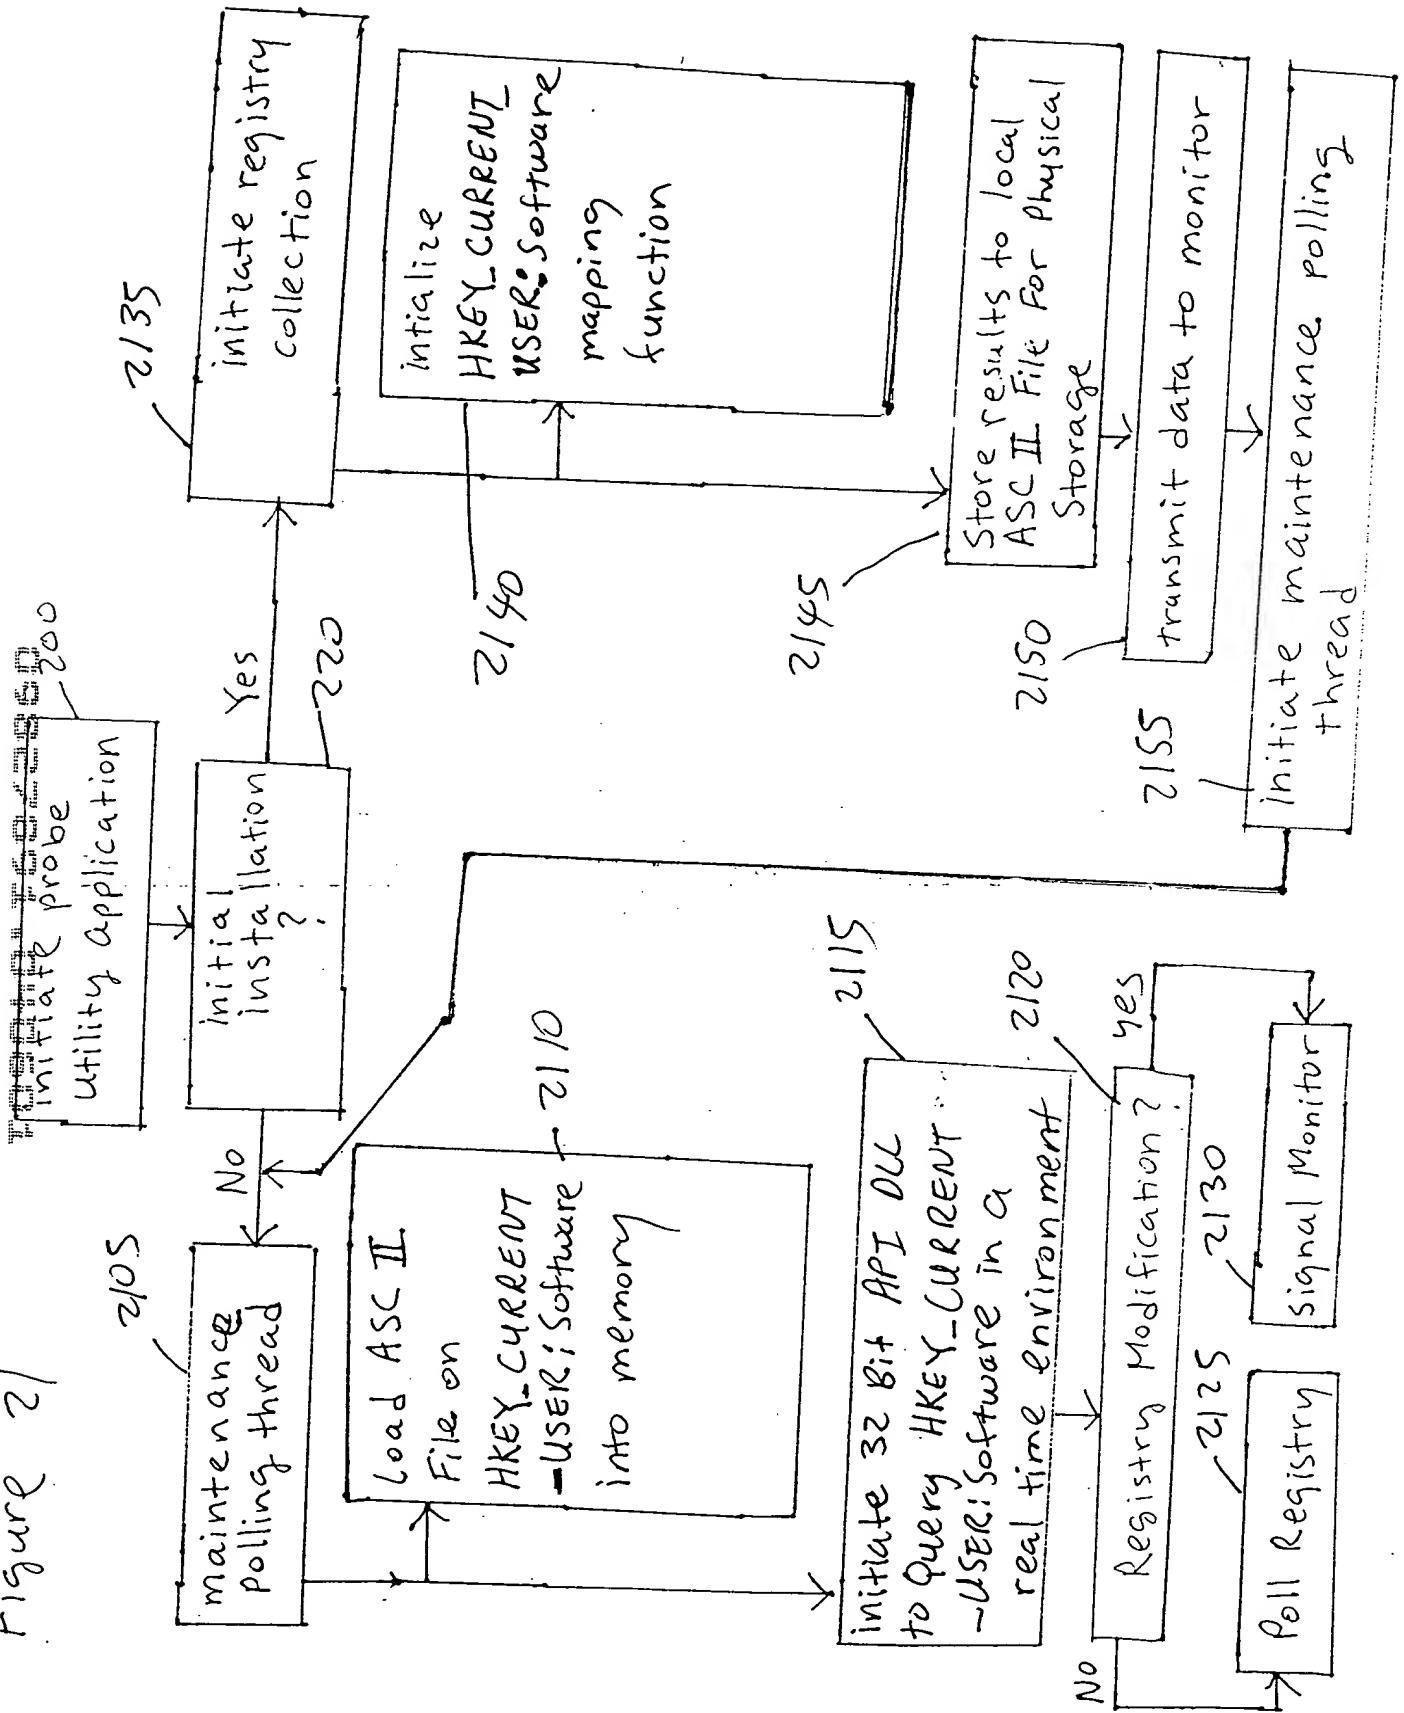 Figure 21
initiate probe
utility application
200
initial
installation
?
220
Yes
No
2105
maintenance
polling thread
Load ASC II
File on
HKEY_CURRENT
-USER:Software
into memory
2110
2115
initiate 32 Bit API DLL
to Query HKEY_CURRENT
-USER:Software in a
real time environment
2120
Registry Modification?
yes
No
2125
Poll Registry
2130
signal Monitor
2135
initiate registry
collection
2140
intialize
HKEY_CURRENT_
USER:Software
mapping
function
2145
Store results to local
ASC II File For Physical
Storage
2150
transmit data to monitor
2155
initiate maintenance polling
thread